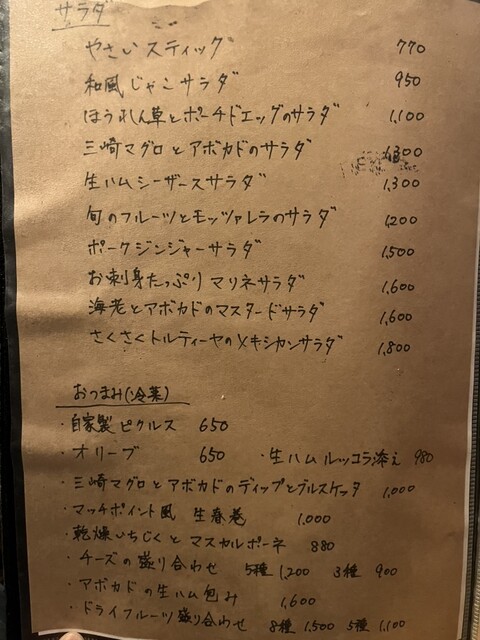 サラダ
やさいスティック 770
和風じゃこサラダ 950
ほうれん草とポーチドエッグのサラダ 1,100
三崎マグロとアボカドのサラダ 1,300
生ハムシーザースサラダ 1,300
旬のフルーツとモッツァレラのサラダ 1,200
ポークジンジャーサラダ 1,500
お刺身たっぷりマリネサラダ 1,600
海老とアボカドのマスタードサラダ 1,600
さくさくトルティーヤのメキシカンサラダ 1,800
おつまみ(冷菜)
・自家製ピクルス 650
・オリーブ 650 ・生ハムルッコラ添え 980
・三崎マグロとアボカドのディップとブルスケッタ 1,000
・マッチポイント風 生春巻 1,000
・乾燥いちじくとマスカルポーネ 880
・チーズの盛り合わせ 5種 1,200 3種 900
・アボカドの生ハム包み 1,600
・ドライフルーツ盛り合わせ 8種 1,500 5種 1,100